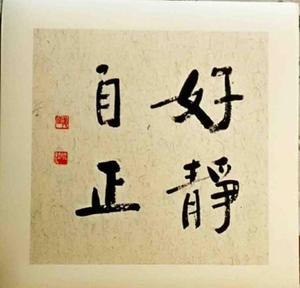 好靜
自正